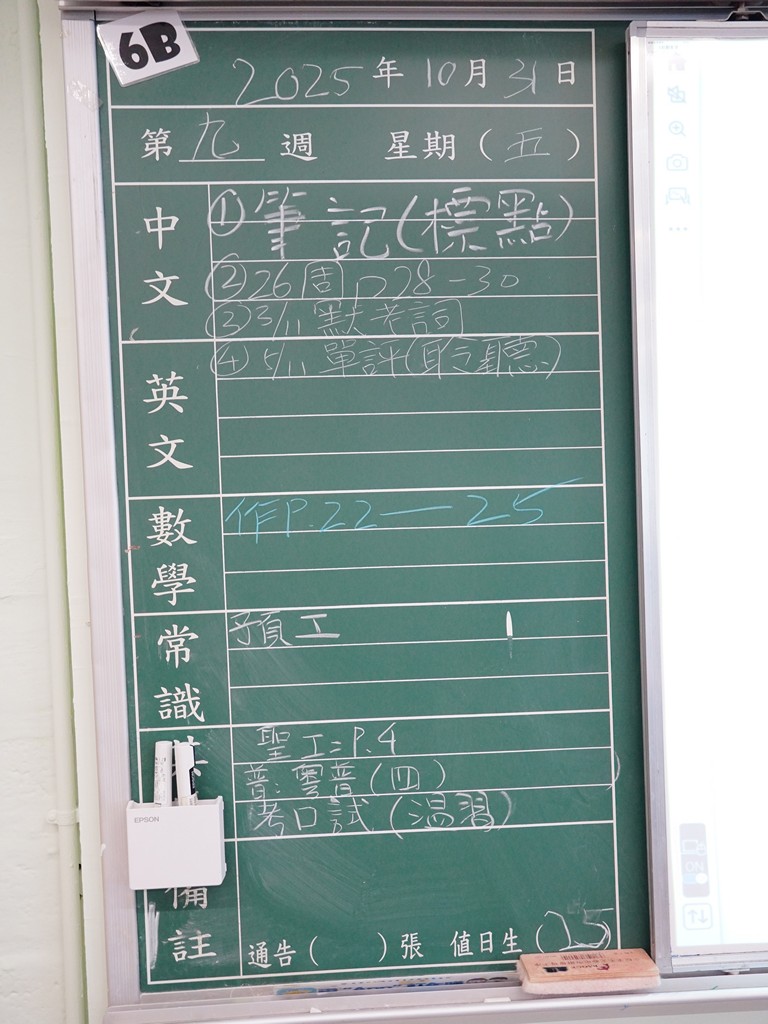 6B
2025年10月31日
第九週 星期（五）
中文
①筆記(標點)
②26周P28-30
③3/11默考詞
④5/11單評(聆聽)
英文
數學
作P.22—25
常識
預工
聖工:P.4
普:雲普(四)
考口試(溫習)
EPSON
備註
通告（ ）張 值日生(25)